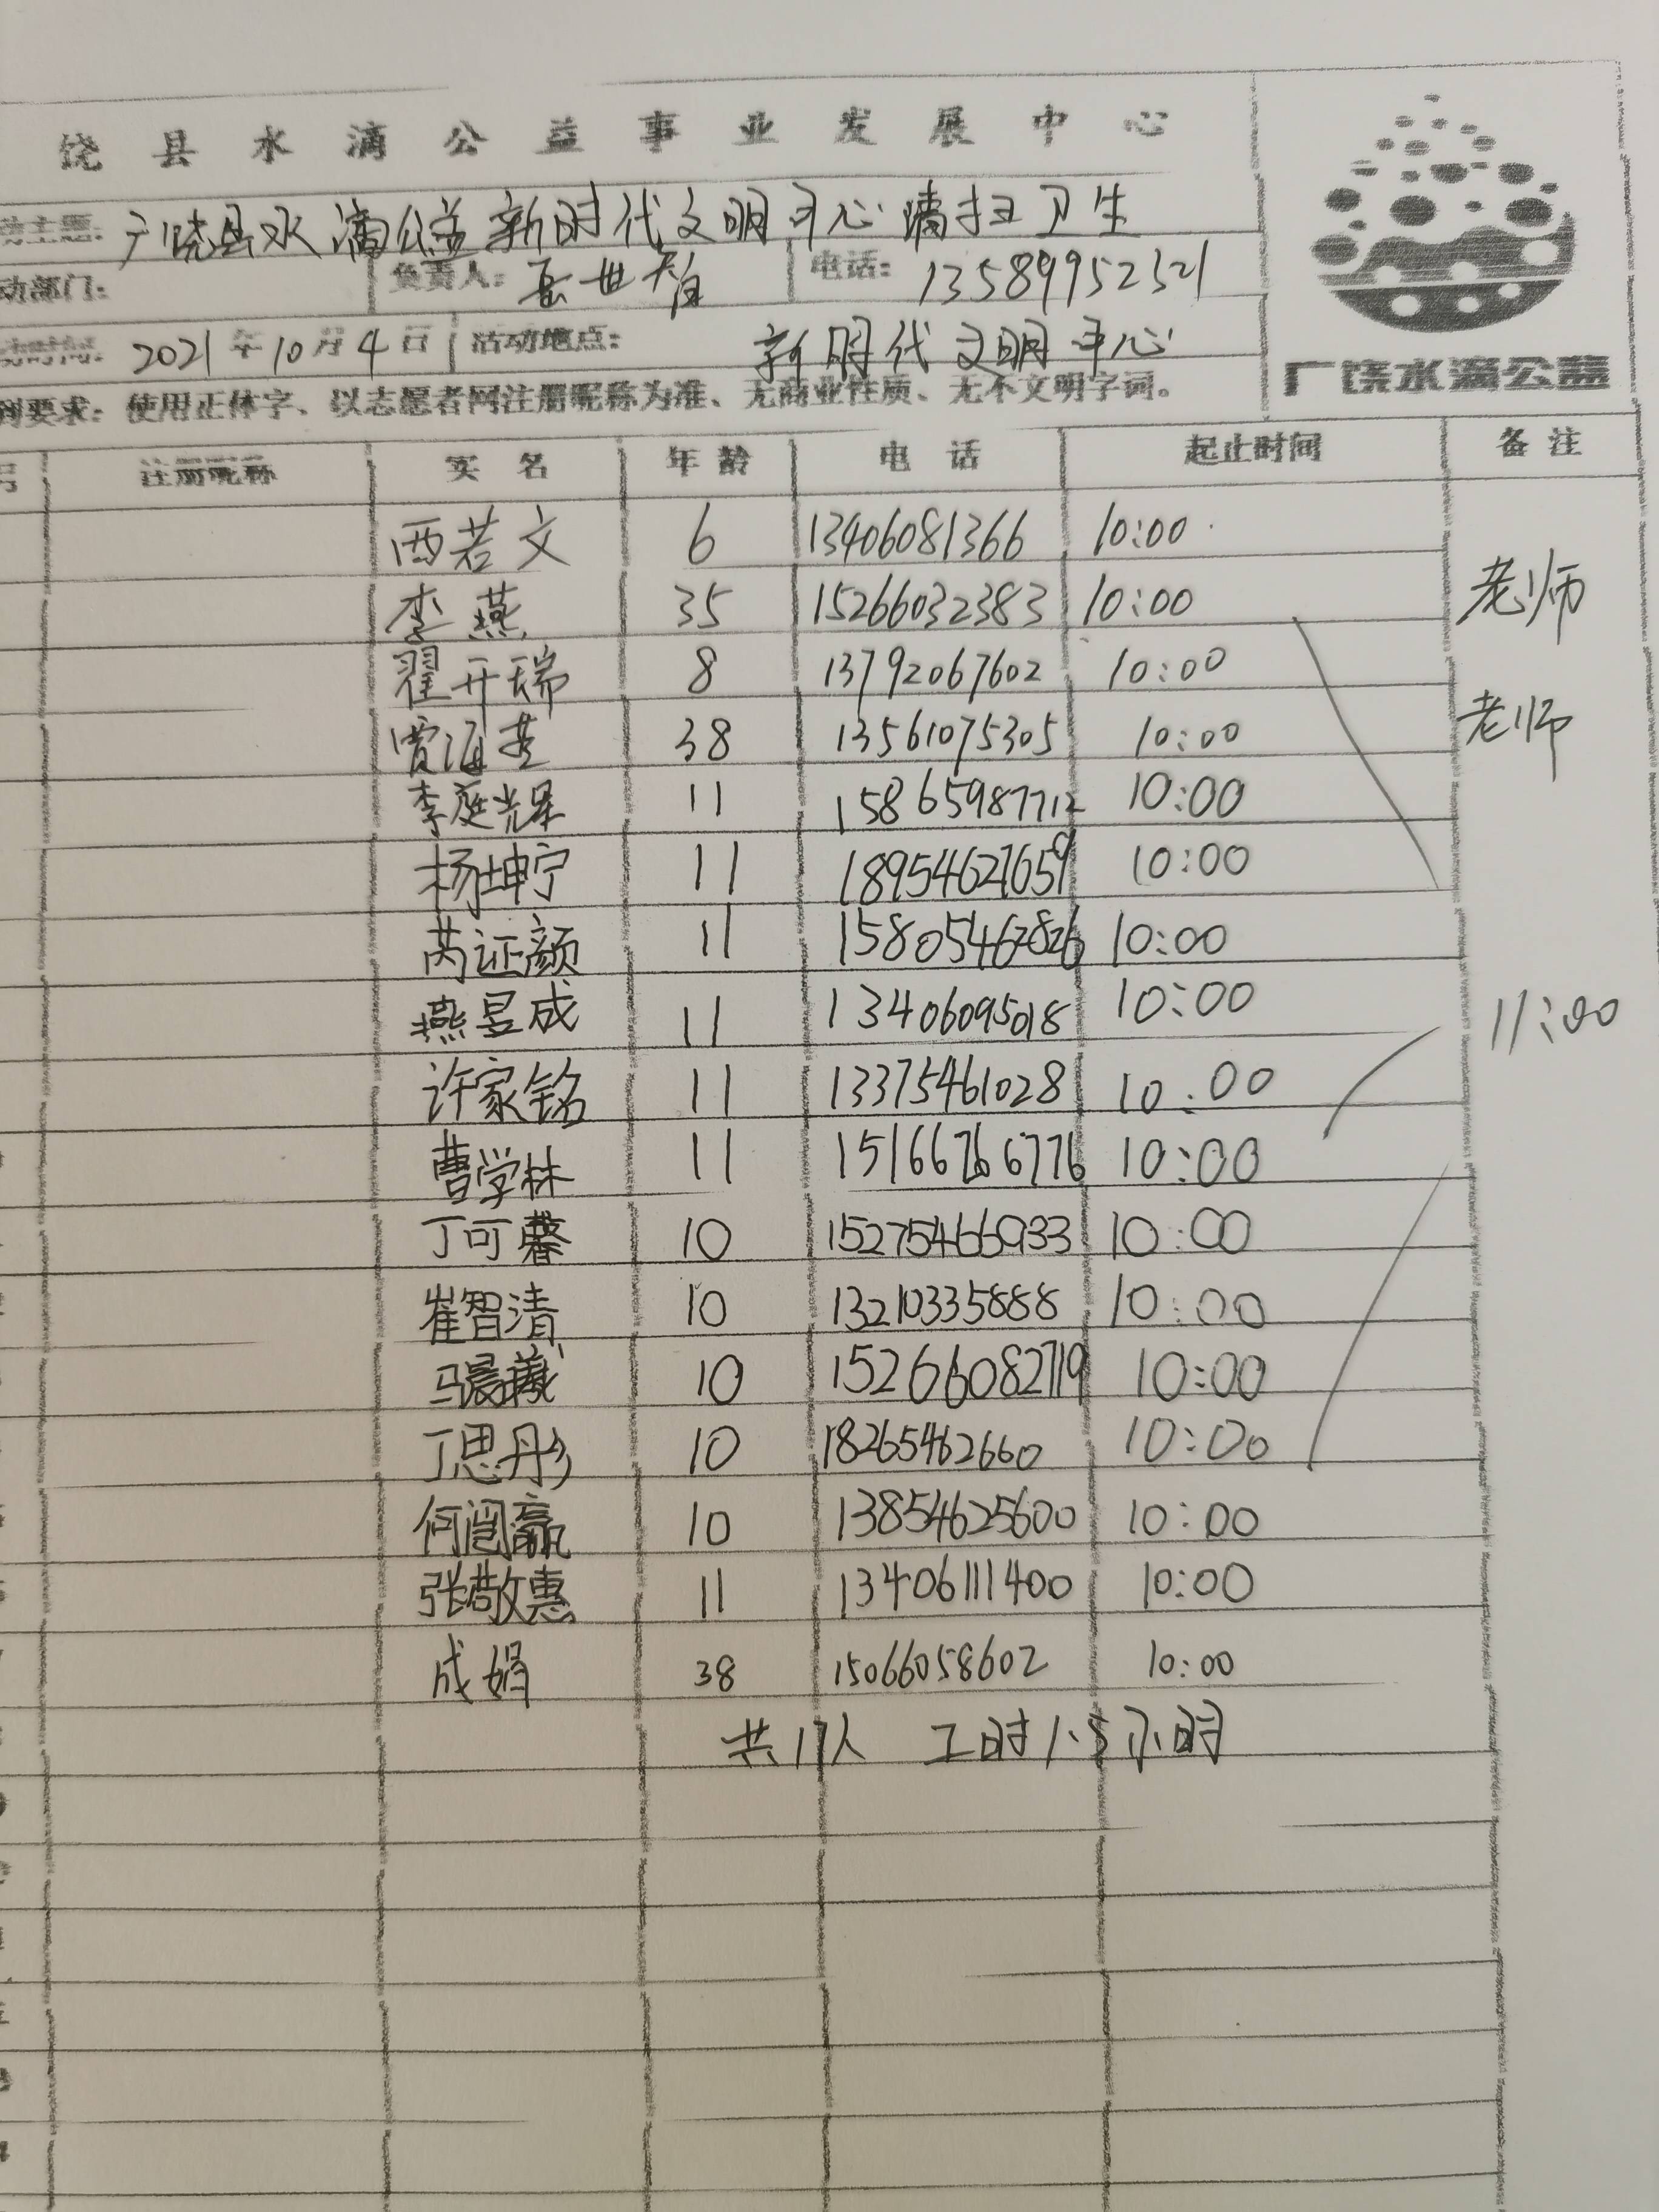 饶县水滴公益事业发展中心
动主题: 广饶县水滴公益新时代文明中心清扫卫生
动部门: 负责人: 电话: 13589952521
动时间: 2021年10月4日 活动地点: 新时代文明中心
到要求: 使用正体字、以志愿者网注册昵称为准、无商业性质、无不文明字词。
广饶水滴公益
号 注册昵称 实名 年龄 电话 起止时间 备注
西若文 6 13406081366 10:00
李燕 35 15266032383 10:00 老师
翟开瑞 8 13792067602 10:00
贾海燕 38 13561075305 10:00 老师
李庭光 11 15865987712 10:00
杨坤宁 11 18954627659 10:00
芮证颜 11 15805462826 10:00
燕昱成 11 13406095018 10:00 11:00
许家铭 11 13375461028 10:00
曹学林 11 15166766776 10:00
丁可馨 10 15275466933 10:00
崔智清 10 13210335888 10:00
马晨曦 10 15266082719 10:00
丁思彤 10 18265462660 10:00
何闿赢 10 13854625600 10:00
张敬惠 11 13406111400 10:00
成娟 38 15066058602 10:00
共17人 工时1.5小时